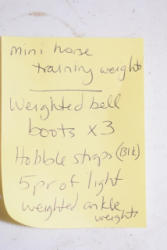 mini horse
training weights
Weighted bell
boots x3
Hobble straps (BLK)
5 pr of light
weighted ankle
weights